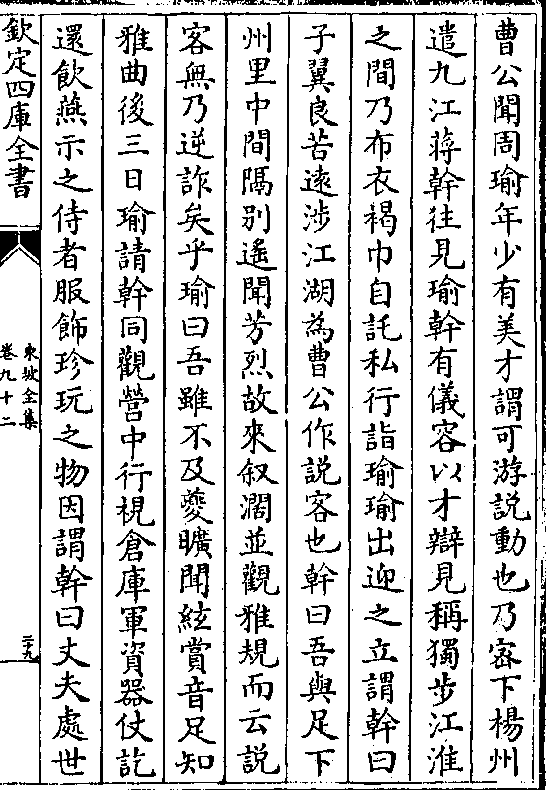 曹公聞周瑜年少有美才謂可游説動也乃宻下楊州
遣九江蔣幹往見瑜幹有儀容以才辯見稱獨步江淮
之間乃布衣褐巾自託私行詣瑜瑜出迎之立謂幹曰
子翼良苦逺涉江湖為曹公作説客也幹曰吾與足下
州里中間隔别遙聞芳烈故來叙濶並觀雅規而云説
客無乃逆詐矣乎瑜曰吾雖不及夔曠聞絃賞音足知
雅曲後三日瑜請幹同觀營中行視倉庫軍資器仗訖
還飲燕示之侍者服飾珍玩之物因謂幹曰丈夫處世
欽定四庫全書
東坡全集
卷九十二
二十九